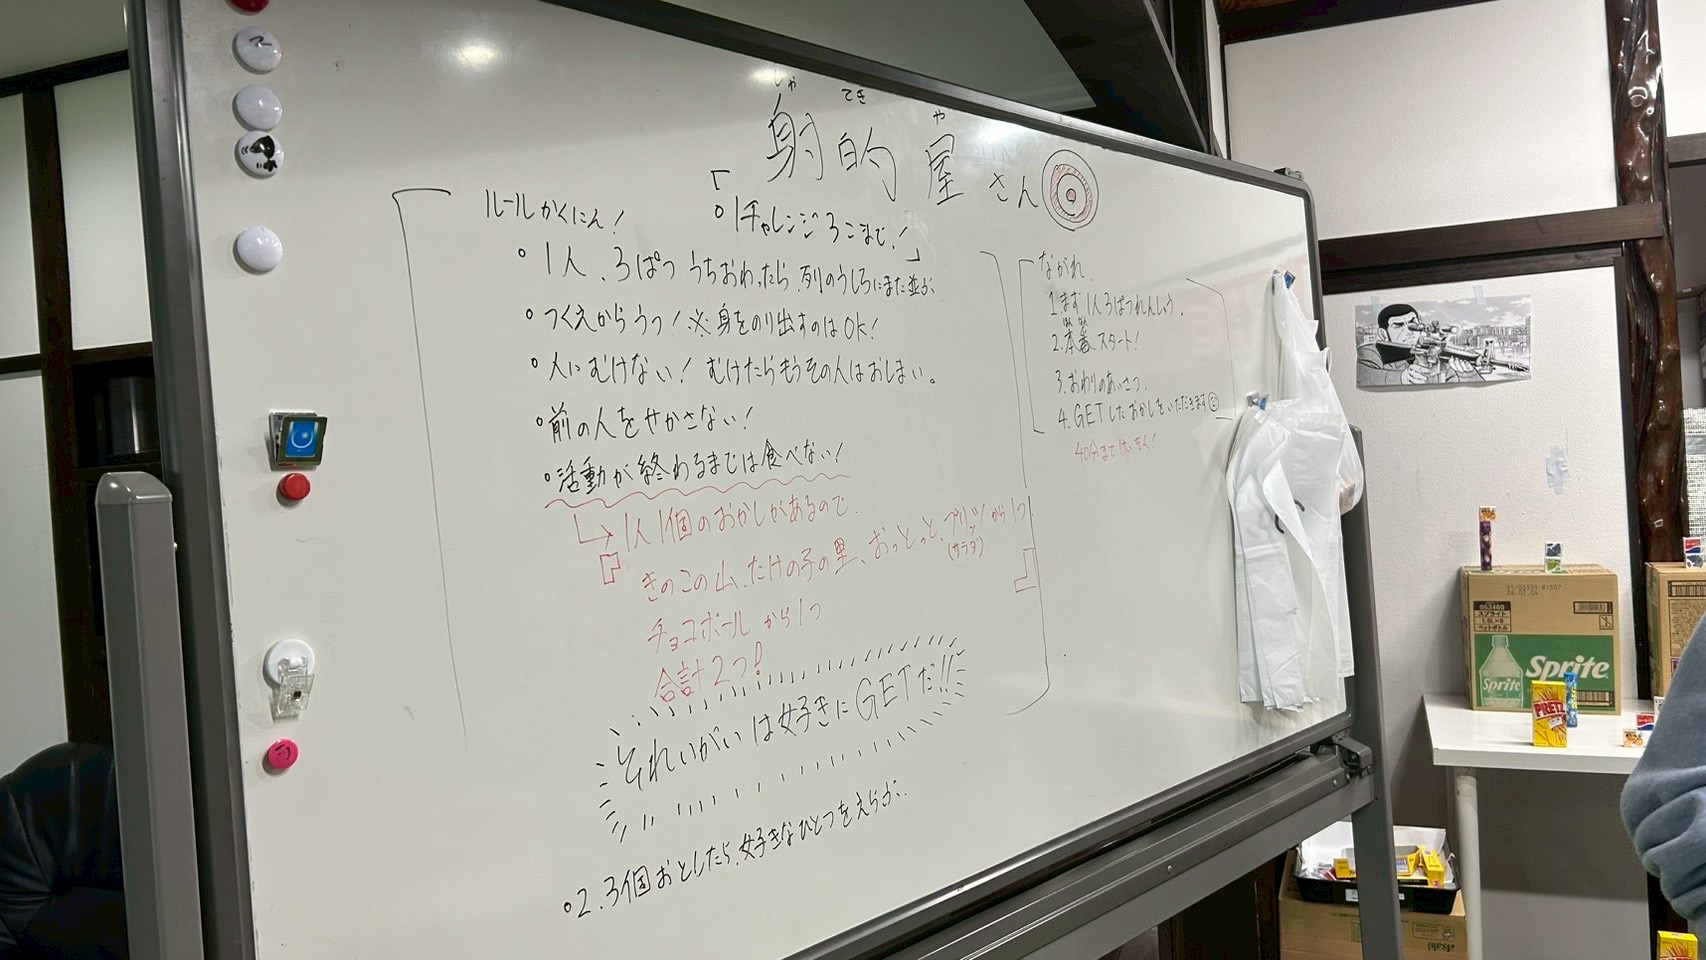 しゃ てき や
射的屋さん
ルールかくにん!
「◦1チャレンジ3こまで!」
◦1人、3ぱつ うちおわったら、列のうしろにまた並ぶ、
◦つくえからうつ!※身をのり出すのはOK!
◦人にむけない! むけたらもうその人はおしまい。
◦前の人をせかさない!
◦活動が終わるまでは食べない!
→1人1個のおかしがあるので、
きのこの山、たけの子の里、おっとっと、プリッツから1つ
(サラダ)
チョコボール から1つ
合計2つ!
それいがいは好きにGETだ!!
◦2、3個おとしたら、好きなひとつをえらぶ、
ながれ、
1.まず1人3ぱつれんしゅう、
ほん ばん
2.本番スタート!
3.おわりのあいさつ、
4.GETしたおかしをいただきます
40分まで
う
053460
スプライト
ペットボトル
Sprite
Sprite
PRETZ
Asahi